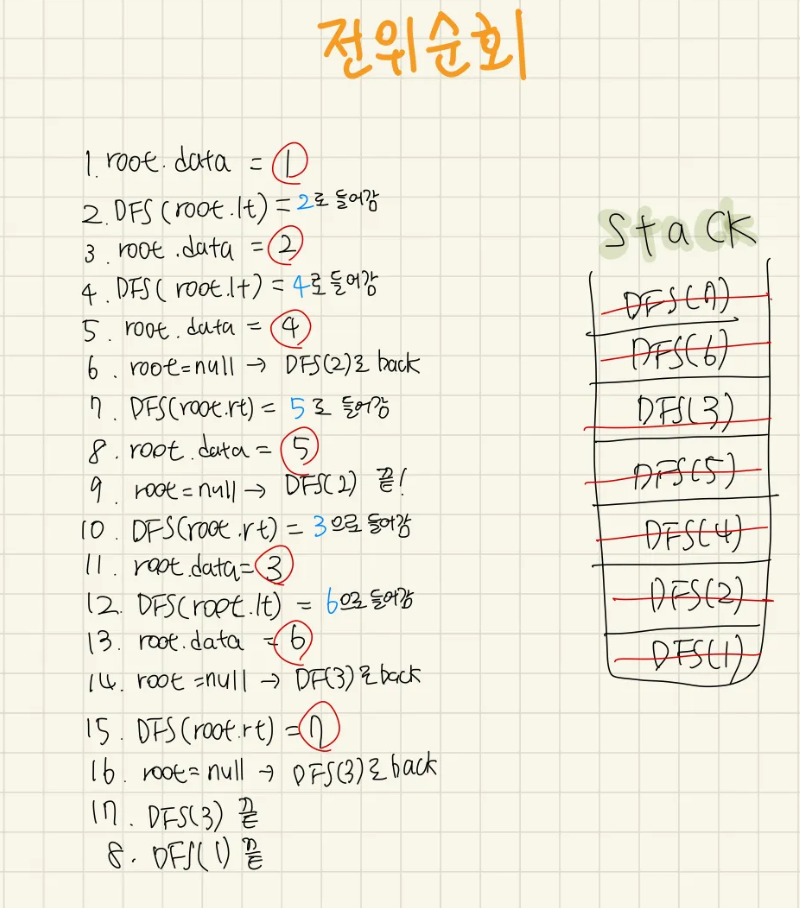 전위순회
1. root.data = 1
2. DFS(root.lt) = 2로 들어감
3. root.data = 2
4. DFS(root.lt) = 4로 들어감
5. root.data = 4
6. root=null → DFS(2)로 back
7. DFS(root.rt) = 5로 들어감
8. root.data = 5
9. root=null → DFS(2) 끝!
10. DFS(root.rt) = 3으로 들어감
11. root.data= 3
12. DFS(root.lt) = 6으로 들어감
13. root.data = 6
14. root=null → DF(3)로 back
15. DFS(root.rt) = 7
16. root=null → DFS(3)로 back
17. DFS(3) 끝
8. DFS(1) 끝
Stack
DFS(7)
DFS(6)
DFS(3)
DFS(5)
DFS(4)
DFS(2)
DFS(1)